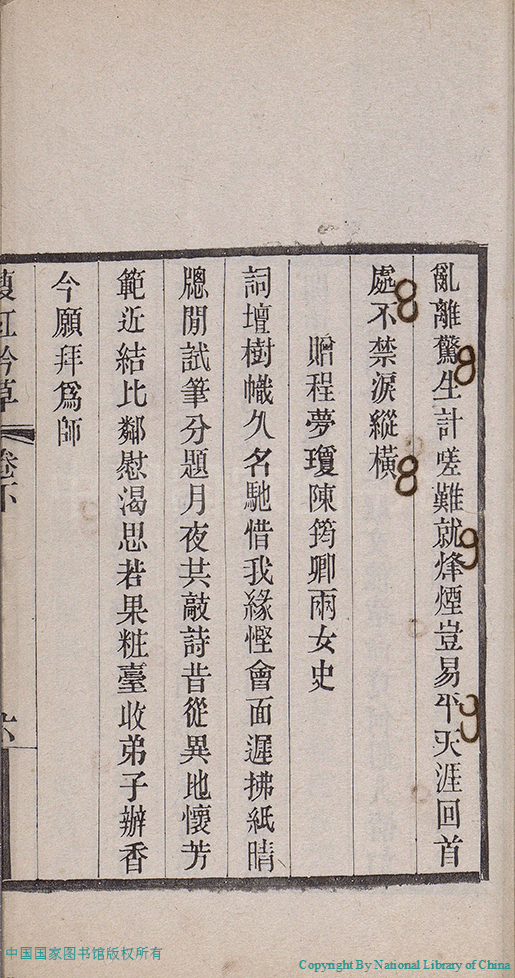 亂離驚生計嗟難就烽煙豈易平天涯回首
處不禁淚縱橫
贈程夢瓊陳筠卿兩女史
詞壇樹幟久名馳惜我緣慳會面遲拂紙晴
牕閒試筆分題月夜共敲詩昔從異地懷芳
範近結比鄰慰渴思若果粧臺收弟子辦香
今願拜爲師
紅吟草
卷下
六
中国国家图书馆版权所有
Copyright By National Library of China